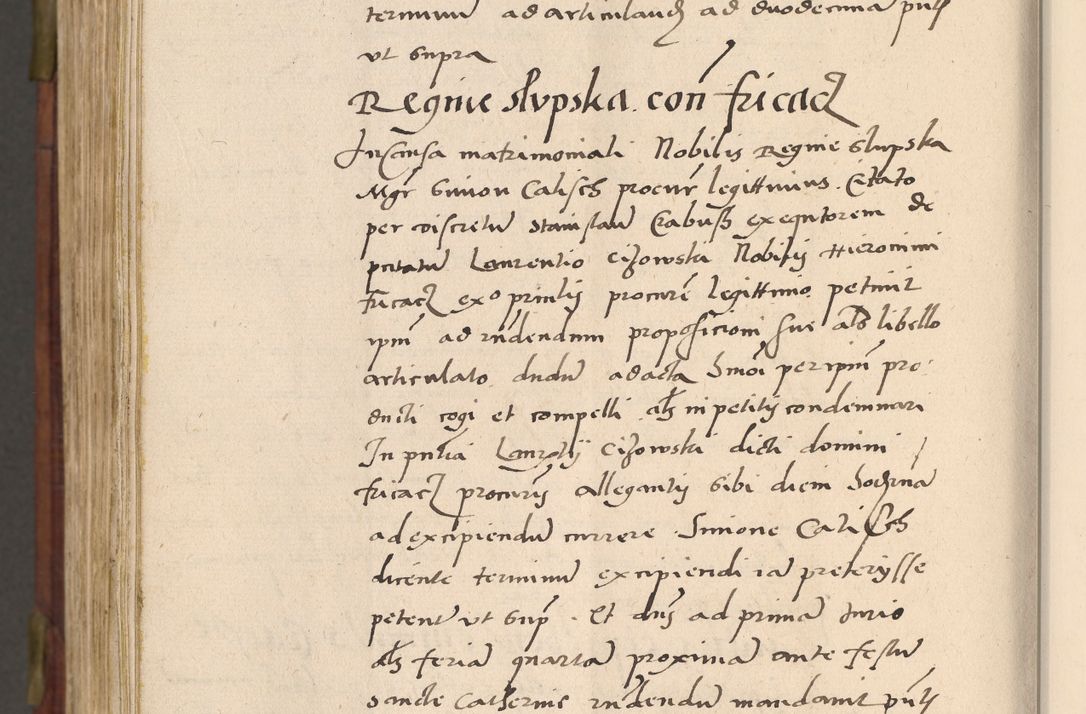 terminum ad articulandum ad duodecima punt
ut supra
Regine Slupska con Fricacz
In causa matrimoniali Nobilis Regine Slupska
Mgr Simon Calisch procur legittimus. Citato
per discretum Stanislaum Crabusch exequtorem de
putatum Laurentio Cizowski Nobilis Hieronimi
Fricacz exo principalis procure legittimo petiuit
ipm ad rndendum propositioni sue als libello
articulato dudum ad acta per ipm pro
ducti cogi et compelli als in petitis condemnari
In pntia Laurentij Cizowski dicti domini
Fricacz procuris allegantis sibi diem hodierna
ad excipiendum currere. Simone Calisch
dicente terminum excipiendi iam preterijsse
petente ut sup. Et dns ad primam Iurio
als feriam quartam proximam ante festum
sancte Catherine rndendum mandauit punt